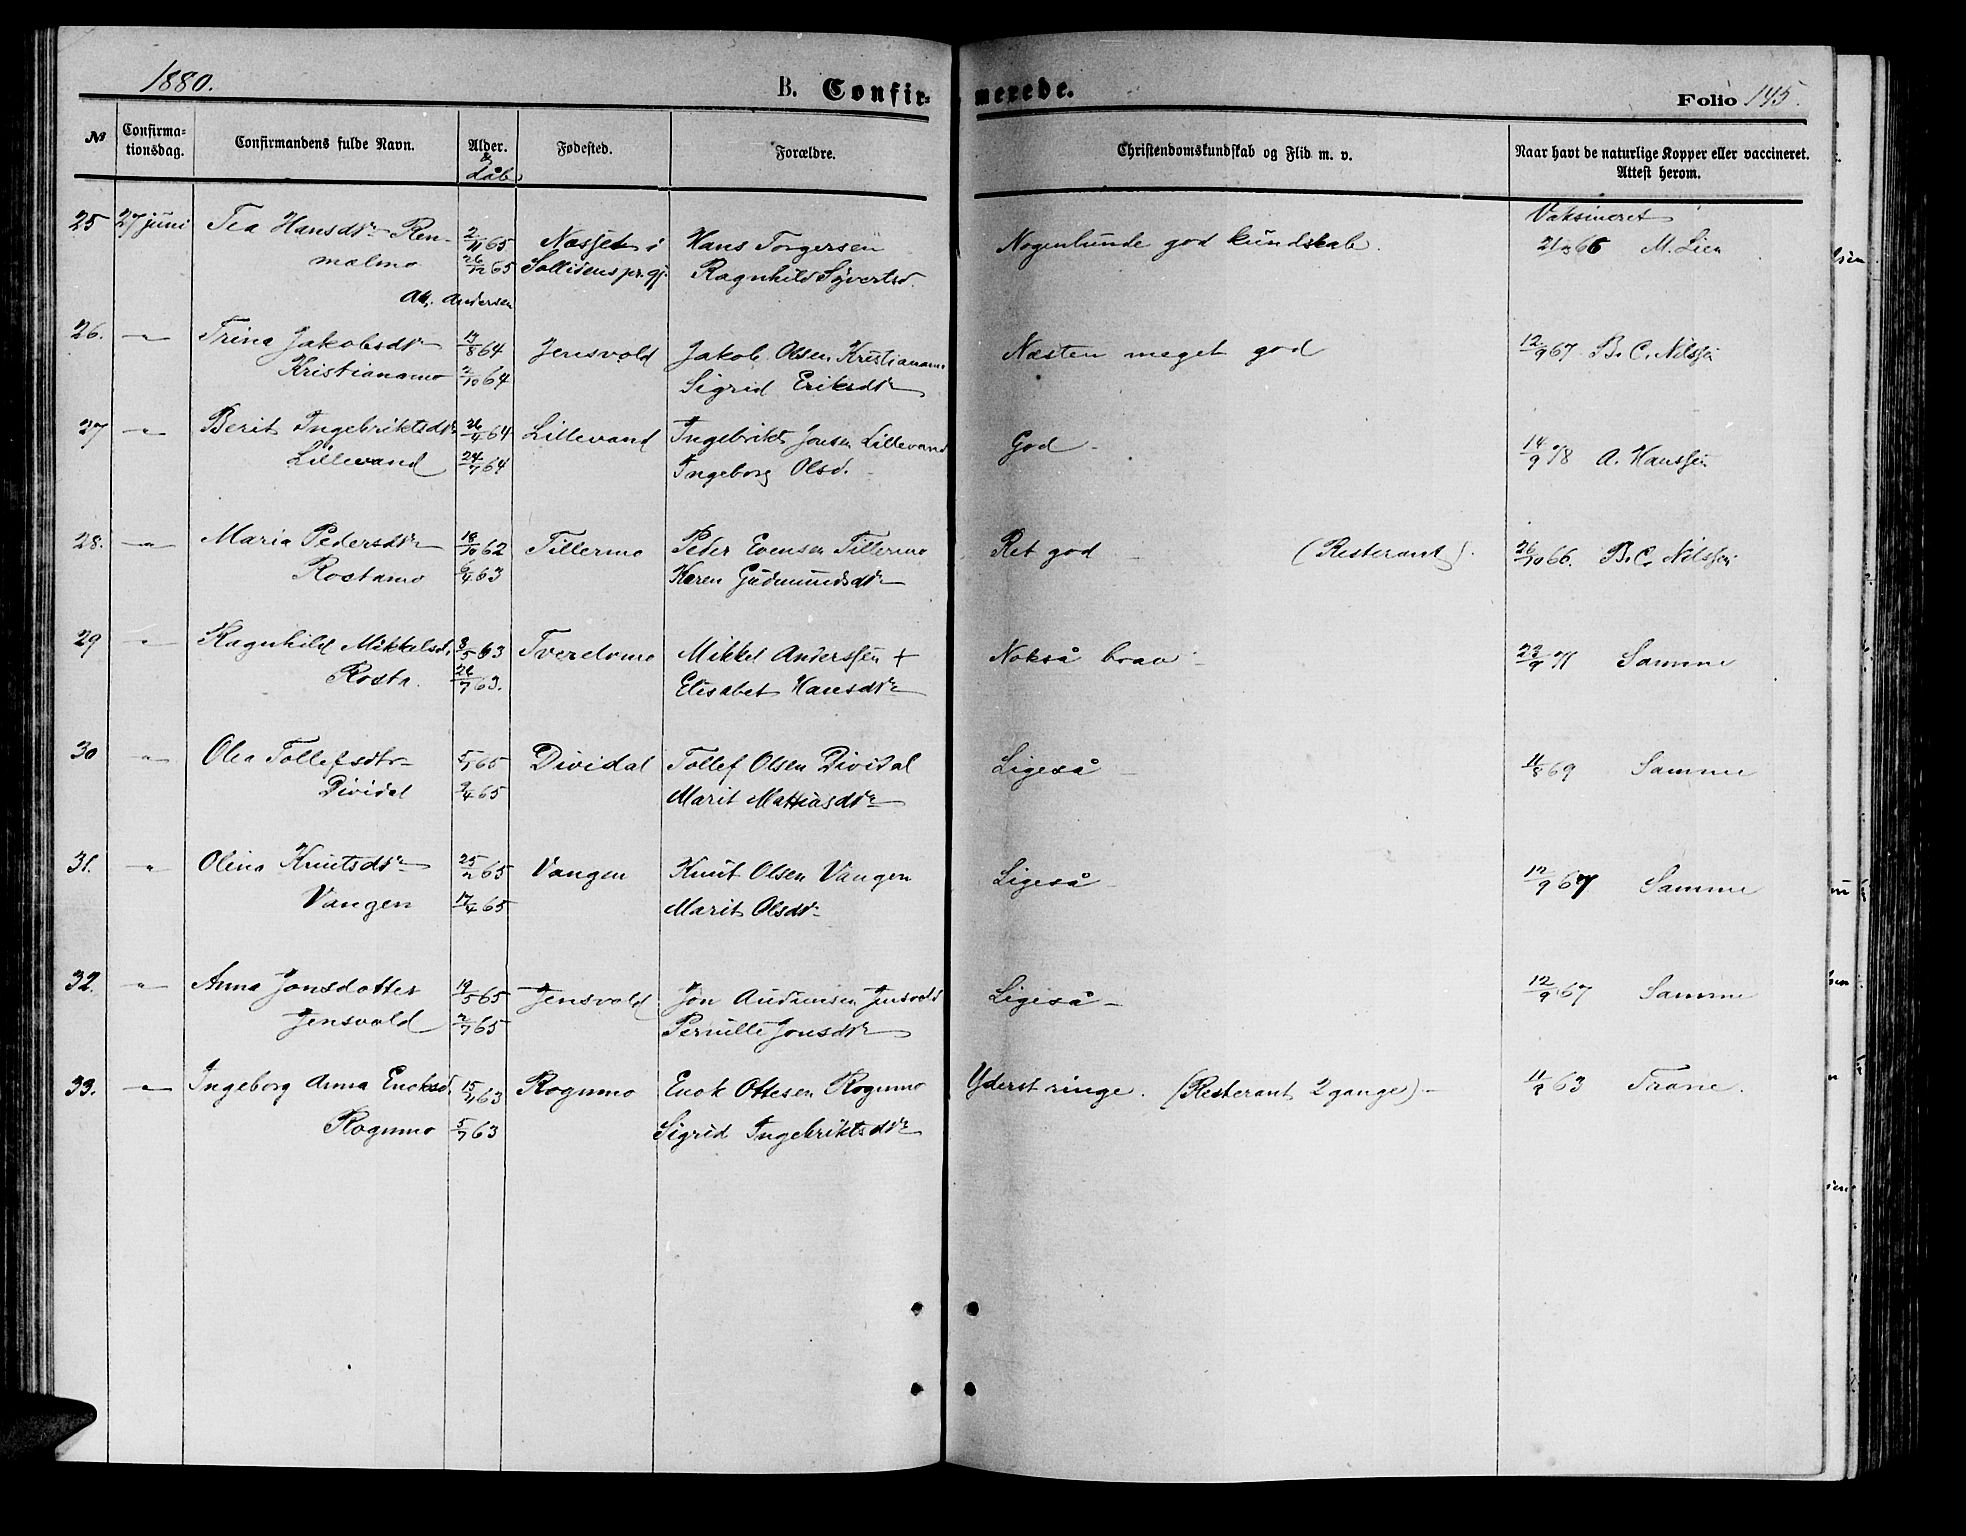 1880.
B. Confirmerede.
Folio 145.
№ Confirmationsdag. Confirmandens fulde Navn. Alder. & dåb Fødested. Forældre. Christendomskundskab og Flid m. v. Naar havt de naturlige Kopper eller vaccineret. Attest herom.
Vaksineret
25 27 juni Tea Hansdtr Ren- 2/11 65 Næsset i Hans Torgersen Nogenlunde god kundskab. 66 M. Lien
malmo 26/12 65 Sollidens pr.gj. Ragnhild Syvertsd.
Andersen
26. " Trina Jakobsdtr 13/8 64 Jensvold Jakob Olsen Kristianamo Næsten meget god 12/9 67 B. C. Nilssen
Kristianamo 2/10 64 Sigrid Eriksdtr
27 " Berit Ingebriktsdtr 26/4 64 Lillevand Ingebrikt Jonsen Lillevand God - 14/9 78 A. Hanssen
Lillevand 24/7 64 Ingeborg Olsd.
28. " Maria Pedersdtr 18/10 62 Tillermo Peder Evensen Tillermo Ret god (Resterant). 26/10 66. B. C. Nilssen
Rostamo 6/4 63 Karen Gudmundsdtr
29 " Ragnhild Mikkelsd. 3/5 63 Tverelvmo Mikkel Anderssen + Nokså brav - 22/9 71 Samme
Rosta. 26/7 63. Elisabet Hansdtr
30 " Olea Tollefsdtr 5/1 65 Dividal Tollef Olsen Dividal Ligeså - 11/8 69 Samme
Dividal 9/4 65 Marit Mattiasdtr
31. " Olina Knutsdtr 25/2 65 Vangen Knut Olsen Vangen Ligeså - 12/9 67 Samme
Vangen 17/4 65 Marit Olsdtr
32. " Anna Jonsdotter 19/5 65 Jensvold Jon Audunsen Jensvold Ligeså - 12/9 67 Samme
Jensvold 2/7 65 Pernille Jonsdtr
33. " Ingeborg Anna Enoksd. 15/4 63 Rognmo Enok Ottesen Rognmo Yderst ringe. (Resterant 2 gange) - 11/8 63 Trane.
Rognmo 5/7 63 Sigrid Ingebriktsdtr